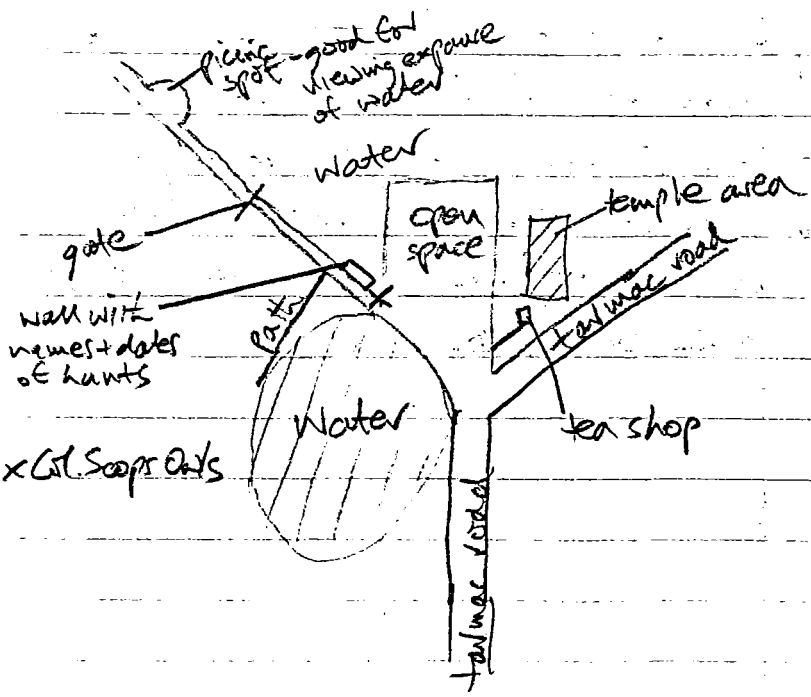 picnic
spot - good for
viewing expanse
of water
Water
open
space
temple area
gate
tarmac road
wall with
names + dates
of hunts
path
Water
tea shop
x Col. Scops Owls
tarmac road